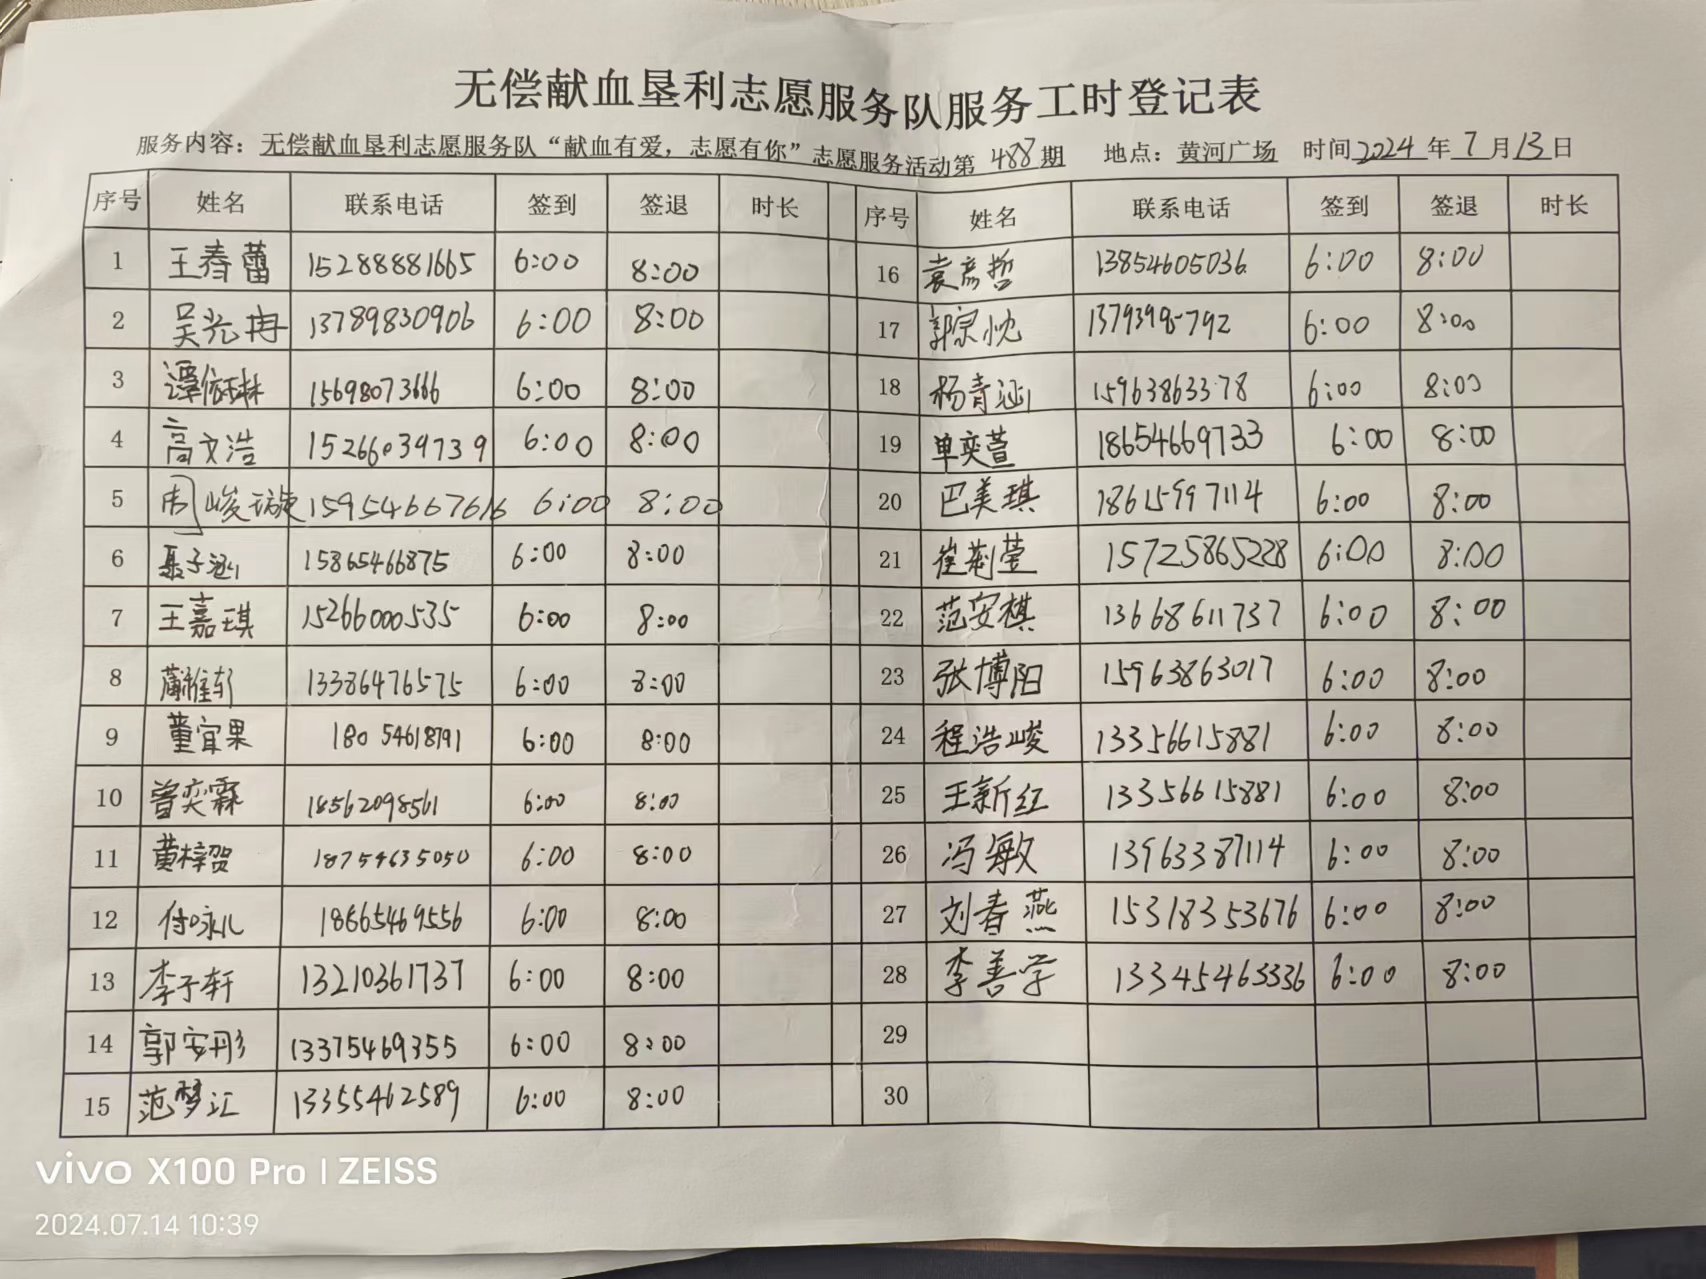 无偿献血垦利志愿服务队服务工时登记表
服务内容：无偿献血垦利志愿服务队“献血有爱，志愿有你”志愿服务活动第 488 期 地点：黄河广场 时间2024年7月13日
序号 姓名 联系电话 签到 签退 时长 序号 姓名 联系电话 签到 签退 时长
1 王春蕾 15288881665 6:00 8:00 16 袁彦哲 13854605036 6:00 8:00
2 吴光冉 13789830906 6:00 8:00 17 6:00 8:00
3 谭依琳 15698073666 6:00 8:00 18 杨青涵 15963863378 6:00 8:00
4 高文浩 15266039739 6:00 8:00 19 单奕萱 18654669733 6:00 8:00
5 周峻璇 15954667616 6:00 8:00 20 巴美琪 18615997114 6:00 8:00
6 聂子涵 15865466875 6:00 8:00 21 崔荆莹 15725865228 6:00 8:00
7 王嘉琪 15266000535 6:00 8:00 22 范安棋 13668611737 6:00 8:00
8 13386476575 6:00 8:00 23 张博阳 15963863017 6:00 8:00
9 董宜果 18054618791 6:00 8:00 24 程浩峻 13356615881 6:00 8:00
10 曾奕霖 18562098561 6:00 8:00 25 王新红 13356615881 6:00 8:00
11 黄梓贺 18754635050 6:00 8:00 26 冯敏 13963387114 6:00 8:00
12 付咏儿 18665469556 6:00 8:00 27 刘春燕 15318353676 6:00 8:00
13 李子轩 13210361737 6:00 8:00 28 李善学 13345465336 6:00 8:00
14 郭安彤 13375469355 6:00 8:00 29
15 范梦汇 13355462589 6:00 8:00 30
vivo X100 Pro | ZEISS
2024.07.14 10:39